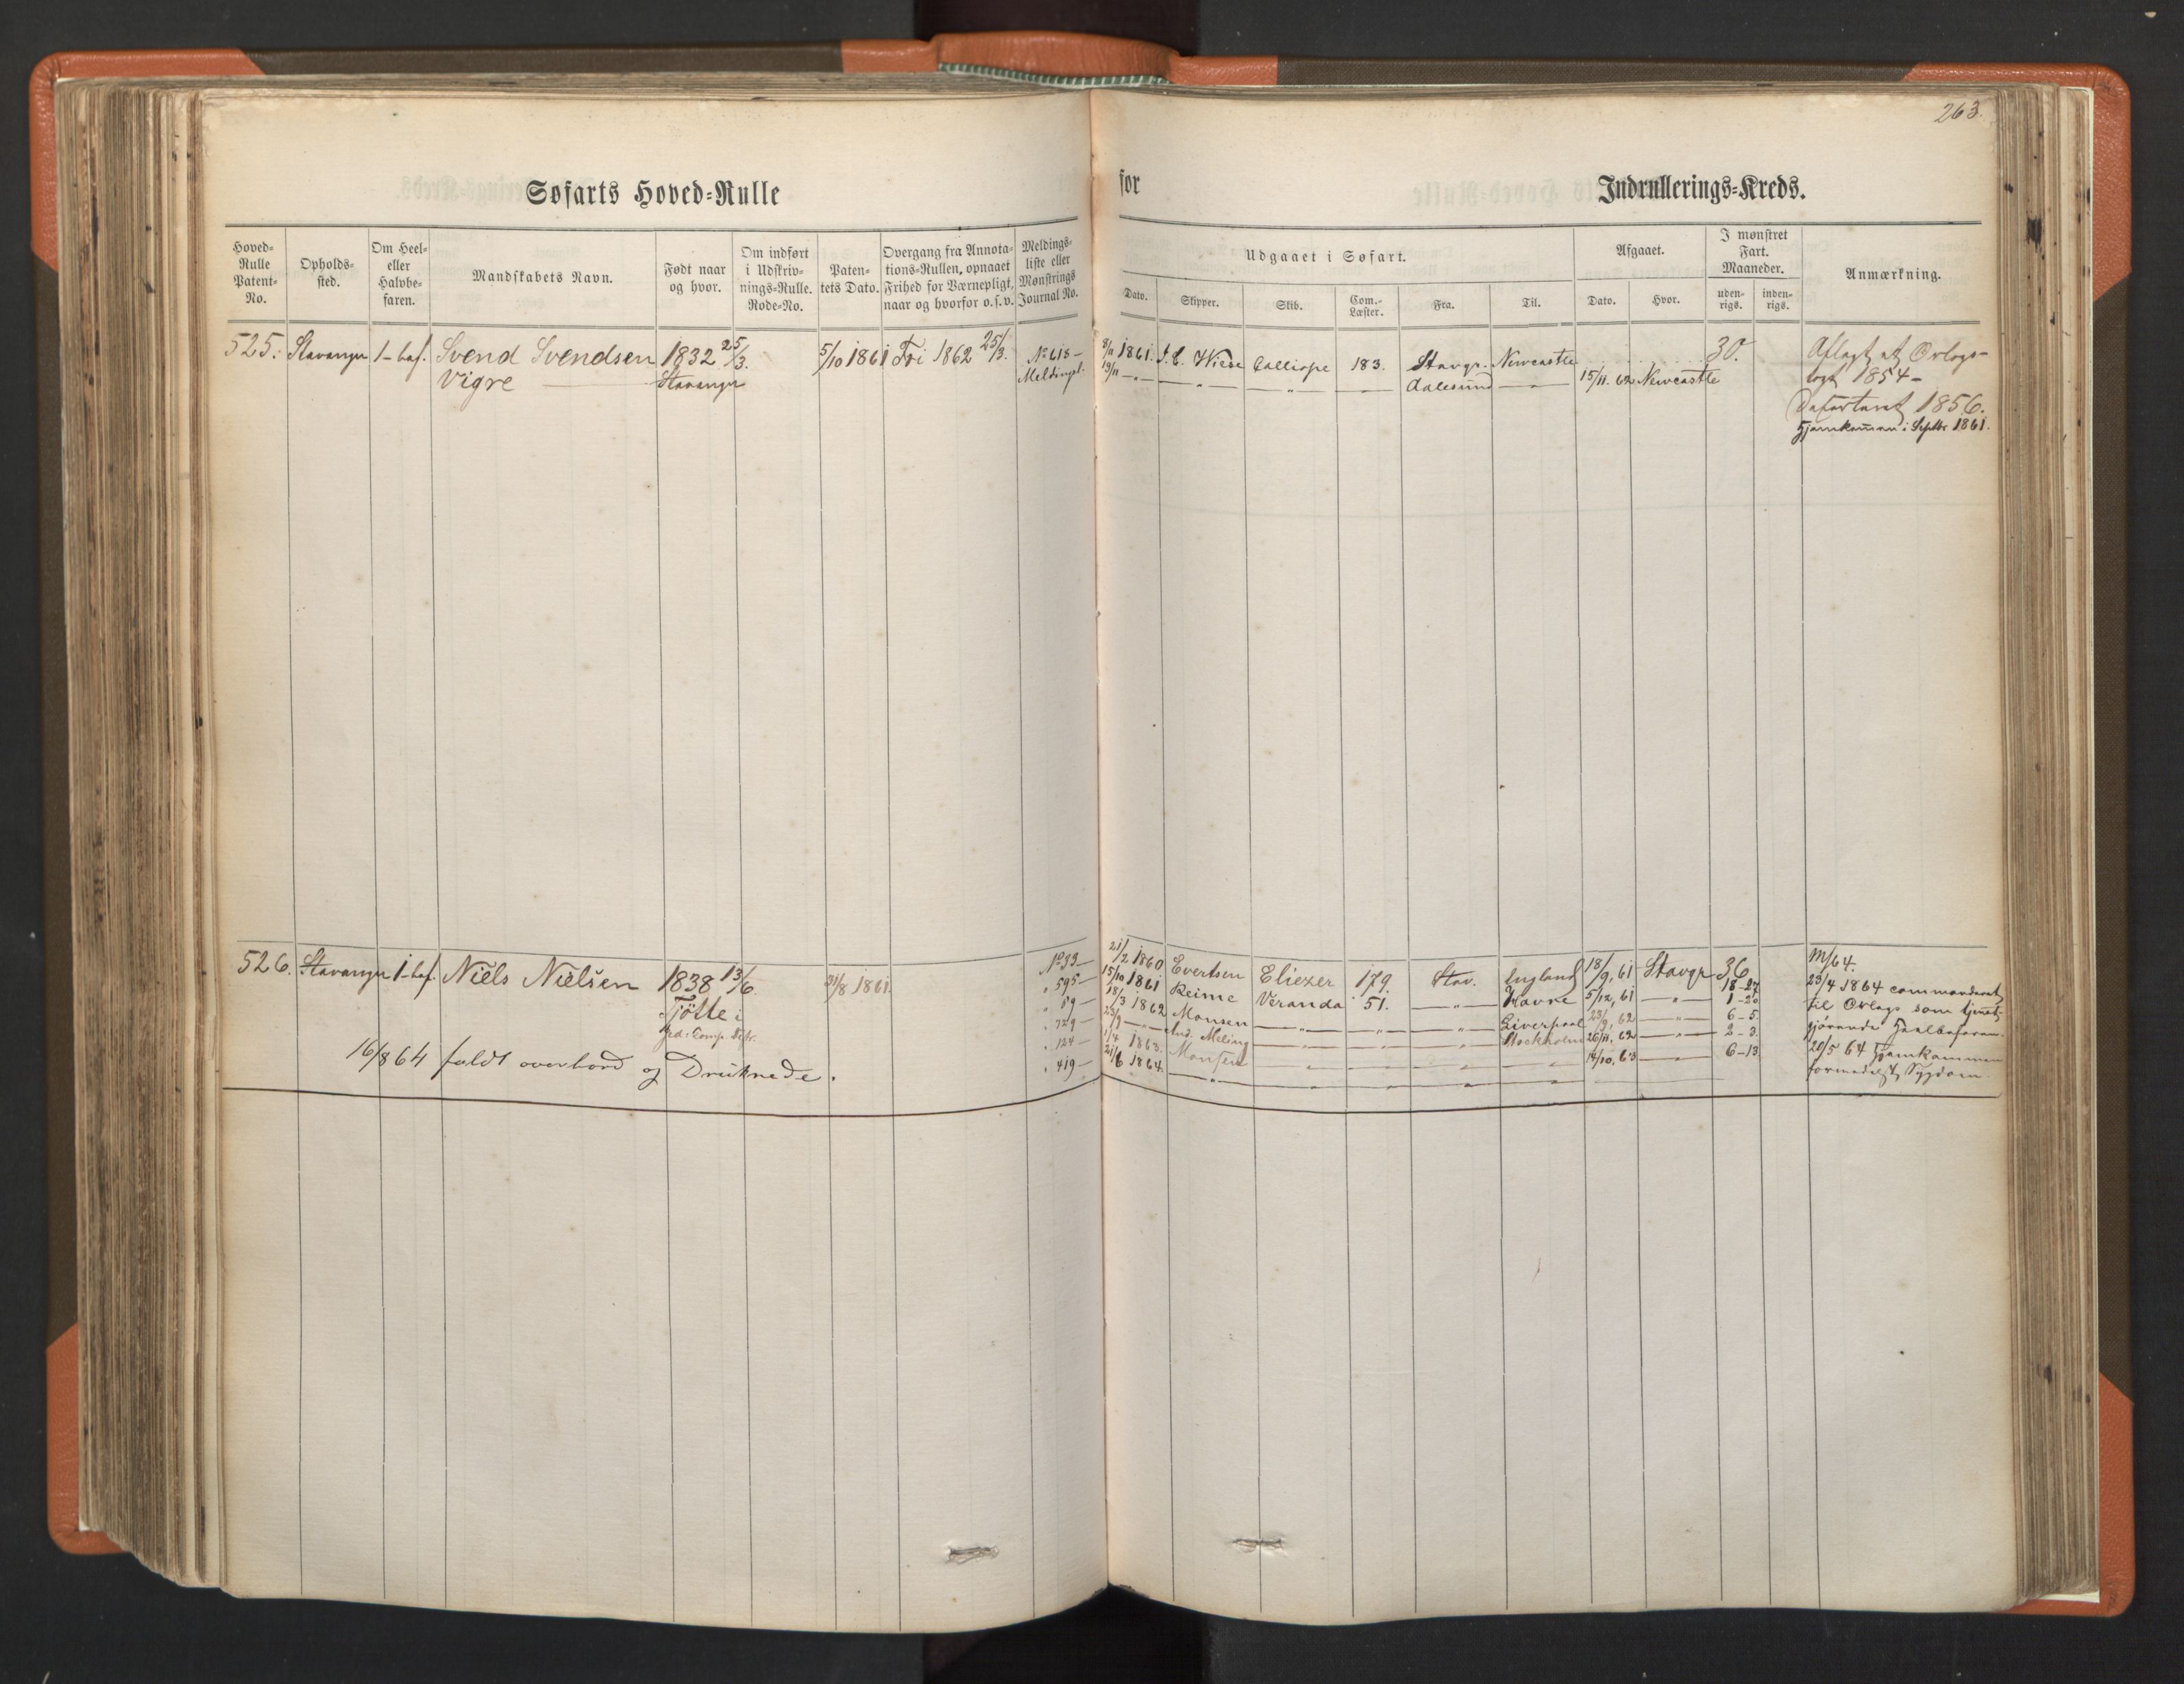 263.
Søfarts Hoved-Rulle
for
Indrullerings-Kreds.
Hoved-Rulle Patent-No.
Opholds-sted.
Om Heel- eller Halvbe-faren.
Mandskabets Navn.
Født naar og hvor.
Om indført i Udskriv-nings-Rulle. Rode-No.
Paten-tets Dato.
Overgang fra Annota-tions-Rullen, opnaaet Frihed for Værnepligt, naar og hvorfor o. s. v.
Meldings-liste eller Mønstrings Journal No.
Udgaaet i Søfart.
Dato.
Skipper.
Skib.
Com.-Læster.
Fra.
Til.
Afgaaet.
Dato.
Hvor.
I mønstret Fart. Maaneder.
uden-rigs.
inden-rigs.
Anmærkning.
525. Stavanger 1-bef. Svend Svendsen 1832 25/3. 5/10 1861 Fri 1862 25/3. No 618-
Vigre Stavanger Meldingsl.
8/11 1861. Calliope 183. Stavgr. Newcastle 30. Aflagt
13/11 - " - " Aalesund 15/11. 62 Newcastle 1854-
1856.
Hjemkommen i Septbr 1861.
526. Stavanger 1-bef. Niels Nielsen 1838 13/6. 31/8 1861. No 33-
Tjötte i " 595-
" 89-
" 729-
" 124-
" 419-
16/8 64 faldt overbord og Druknede.
21/2 1860 Evertsen Eliezer 179. Stav. England 18/9, 61 Stavgr 36 M/64.
15/10 1861 Reime Veranda 51. - " - Havre 5/12, 61 - " - 18-27 23/4 1864 commanderet
18/3 1862 Monsen - " - - " - - " - Liverpool 23/9, 62 - " - 1-20 til Orlogs som tjenst-
23/9 - " - And. Meling - " - - " - - " - Stockholm 26/11, 62 - " - 6-5 gjørende Halvbefaren.
1/4 1863. Monsen " " " " 14/10, 63 2-3 20/5 64 Hjemkommen
21/6 1864. " " " " 6-13 formedelst Sygdom.